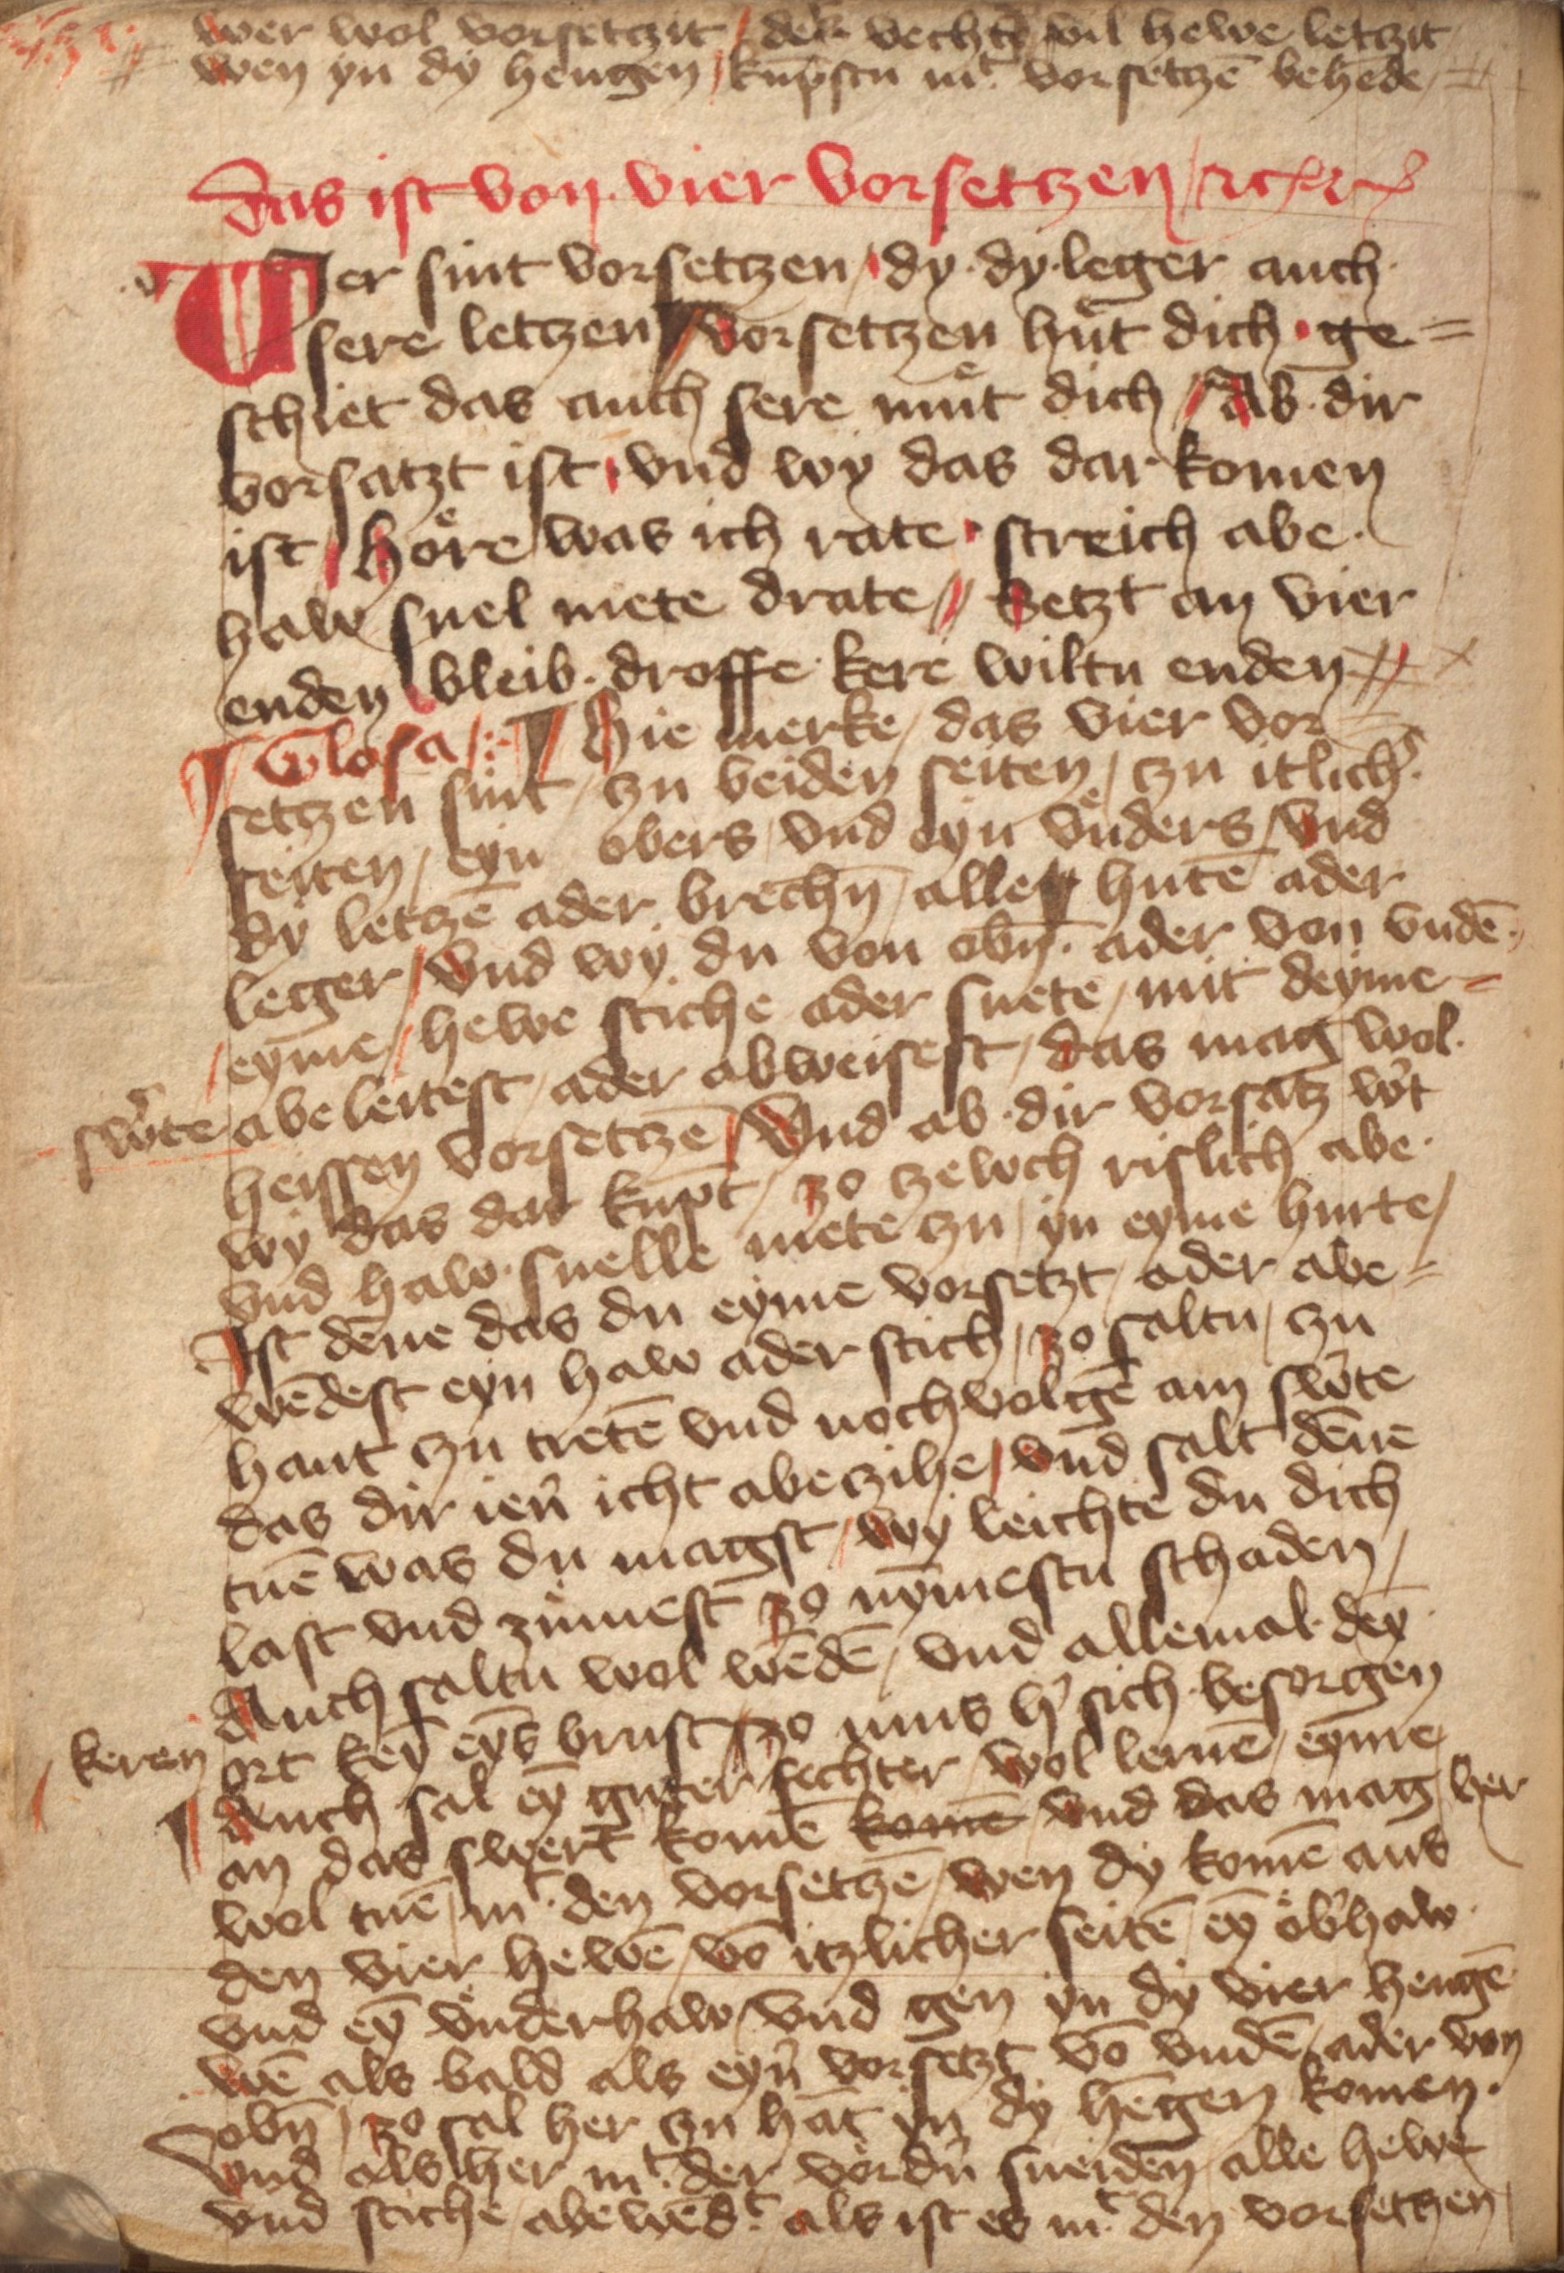 wer wol vorsetczit / der vechtē vil hewe letczit
wen yn dy hengen / kūpstu mt vorsetczē behēde
das ist von vier vorsetczen / rc
Vier sint vorsetczen / dy dy leger auch
sere letczen / Vorsetczen hüt dich · ge=
schiet das auch sere müt dich / Ab dir
vorsatzt ist · vnd wy das dar komen
ist / höre was ich rate · streich abe ·
haw snel mete drate // Setzt an vier
enden / bleib · droffe kere wiltu enden //
Glosa / Hie merke / das vier vor=
setczen sint / zu beiden seiten / czu itlicher
seiten / eyn obers / vnd eyn vnders / vnd
dy letczē ader brechn̄ / alle hutē ader
leger / Vnd wy du von obn̄ · ader von vndē
eyme / hewe stiche ader snete / mit deyme=
sw'te abeleitest / ader abweisest / das mag wol
heissen vorsetczē / Vnd ab dir vorsatz w't
wy das dar kūpt / zo zewch rislich abe
vnd haw snelle mete zu / yn eyme hurte /
Ist dēne das du eyme vorsetzt / ader abe=
wēdest eyn haw ader stich / zo saltu / zu
hant zu tretē vnd nochvolgē am sw'te
das dir ien' icht abeczihe / vnd salt dēne
tuē was du magst / wy leichte du dich
last vnd zümest zo nȳmestu schaden /
Auch saltu wol wēdē / vnd allemal dey̅
keren
ort key̅ ey̅s brust / zo mus h' sich besorgen
Auch sal ey̅ guter fechter / wol lernē / eyme
an das swert komē komē vnd das mag her
wol tuē / mt den vorsetczē / wen dy komē aus
den vier hewē / vō itzlicher seitē / ey̅ öb'haw
vnd ey̅ vnderhaw / vnd gen yn dy vier hengē
wē als bald als eyn' vorsetzt vō vndē / ader von
obn̄ / zo sal her zu hāt yn dy hēgen komen ·
Vnd als her mt der vörd'n sneiden / alle hewe
vnd stiche / abewēdt als ist es mt den vorsetczen